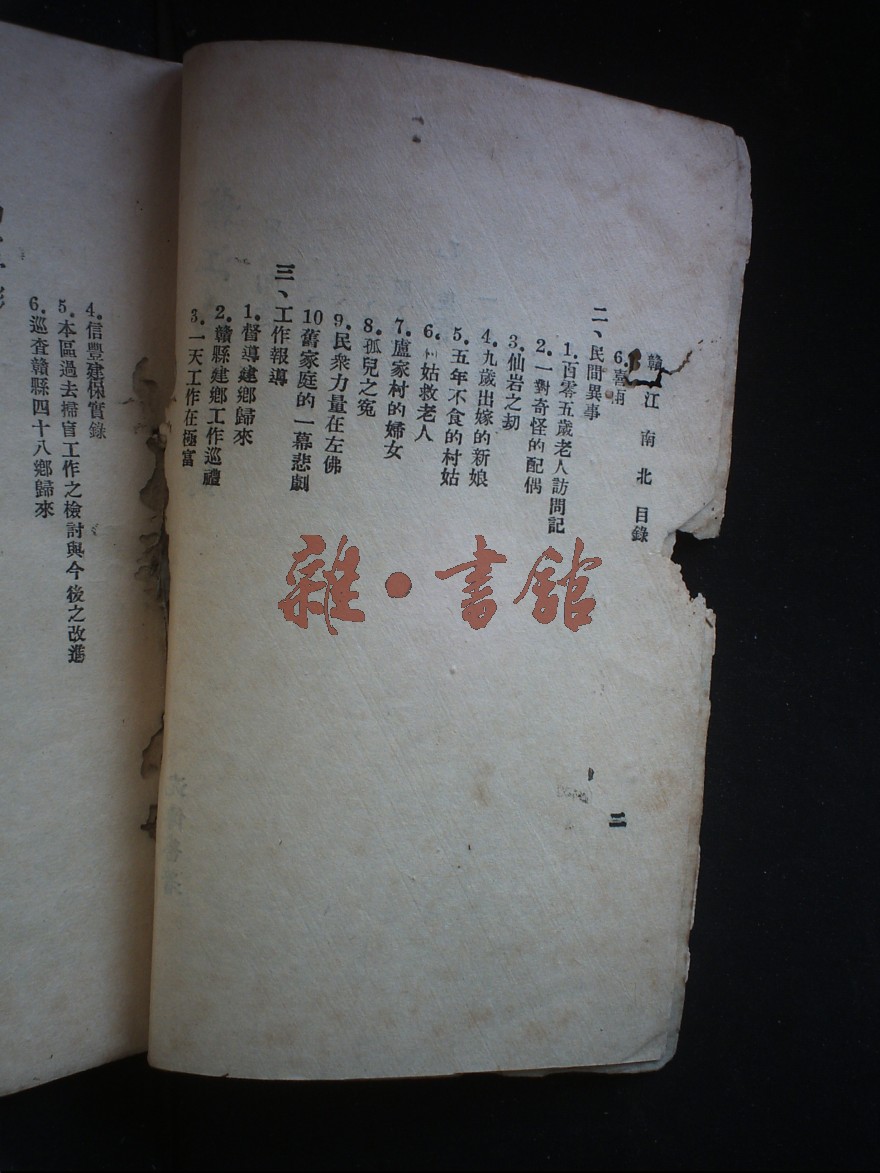 贛江南北目錄
6.喜雨
二、民間異事
1.百零五歲老人訪問記
2.一對奇怪的配偶
3.仙岩之刧
4.九歲出嫁的新娘
5.五年不食的村姑
6.姑救老人
7.盧家村的婦女
8.孤兒之冤
9.民衆力量在左佛
10舊家庭的一幕悲劇
三、工作報導
1.督導建鄉歸來
2.贛縣建鄉工作巡禮
3.一天工作在極富
二
4.信豐建保實錄
5.本區過去掃盲工作之檢討與今後之改進
6.巡查贛縣四十八鄉歸來
雜·書館